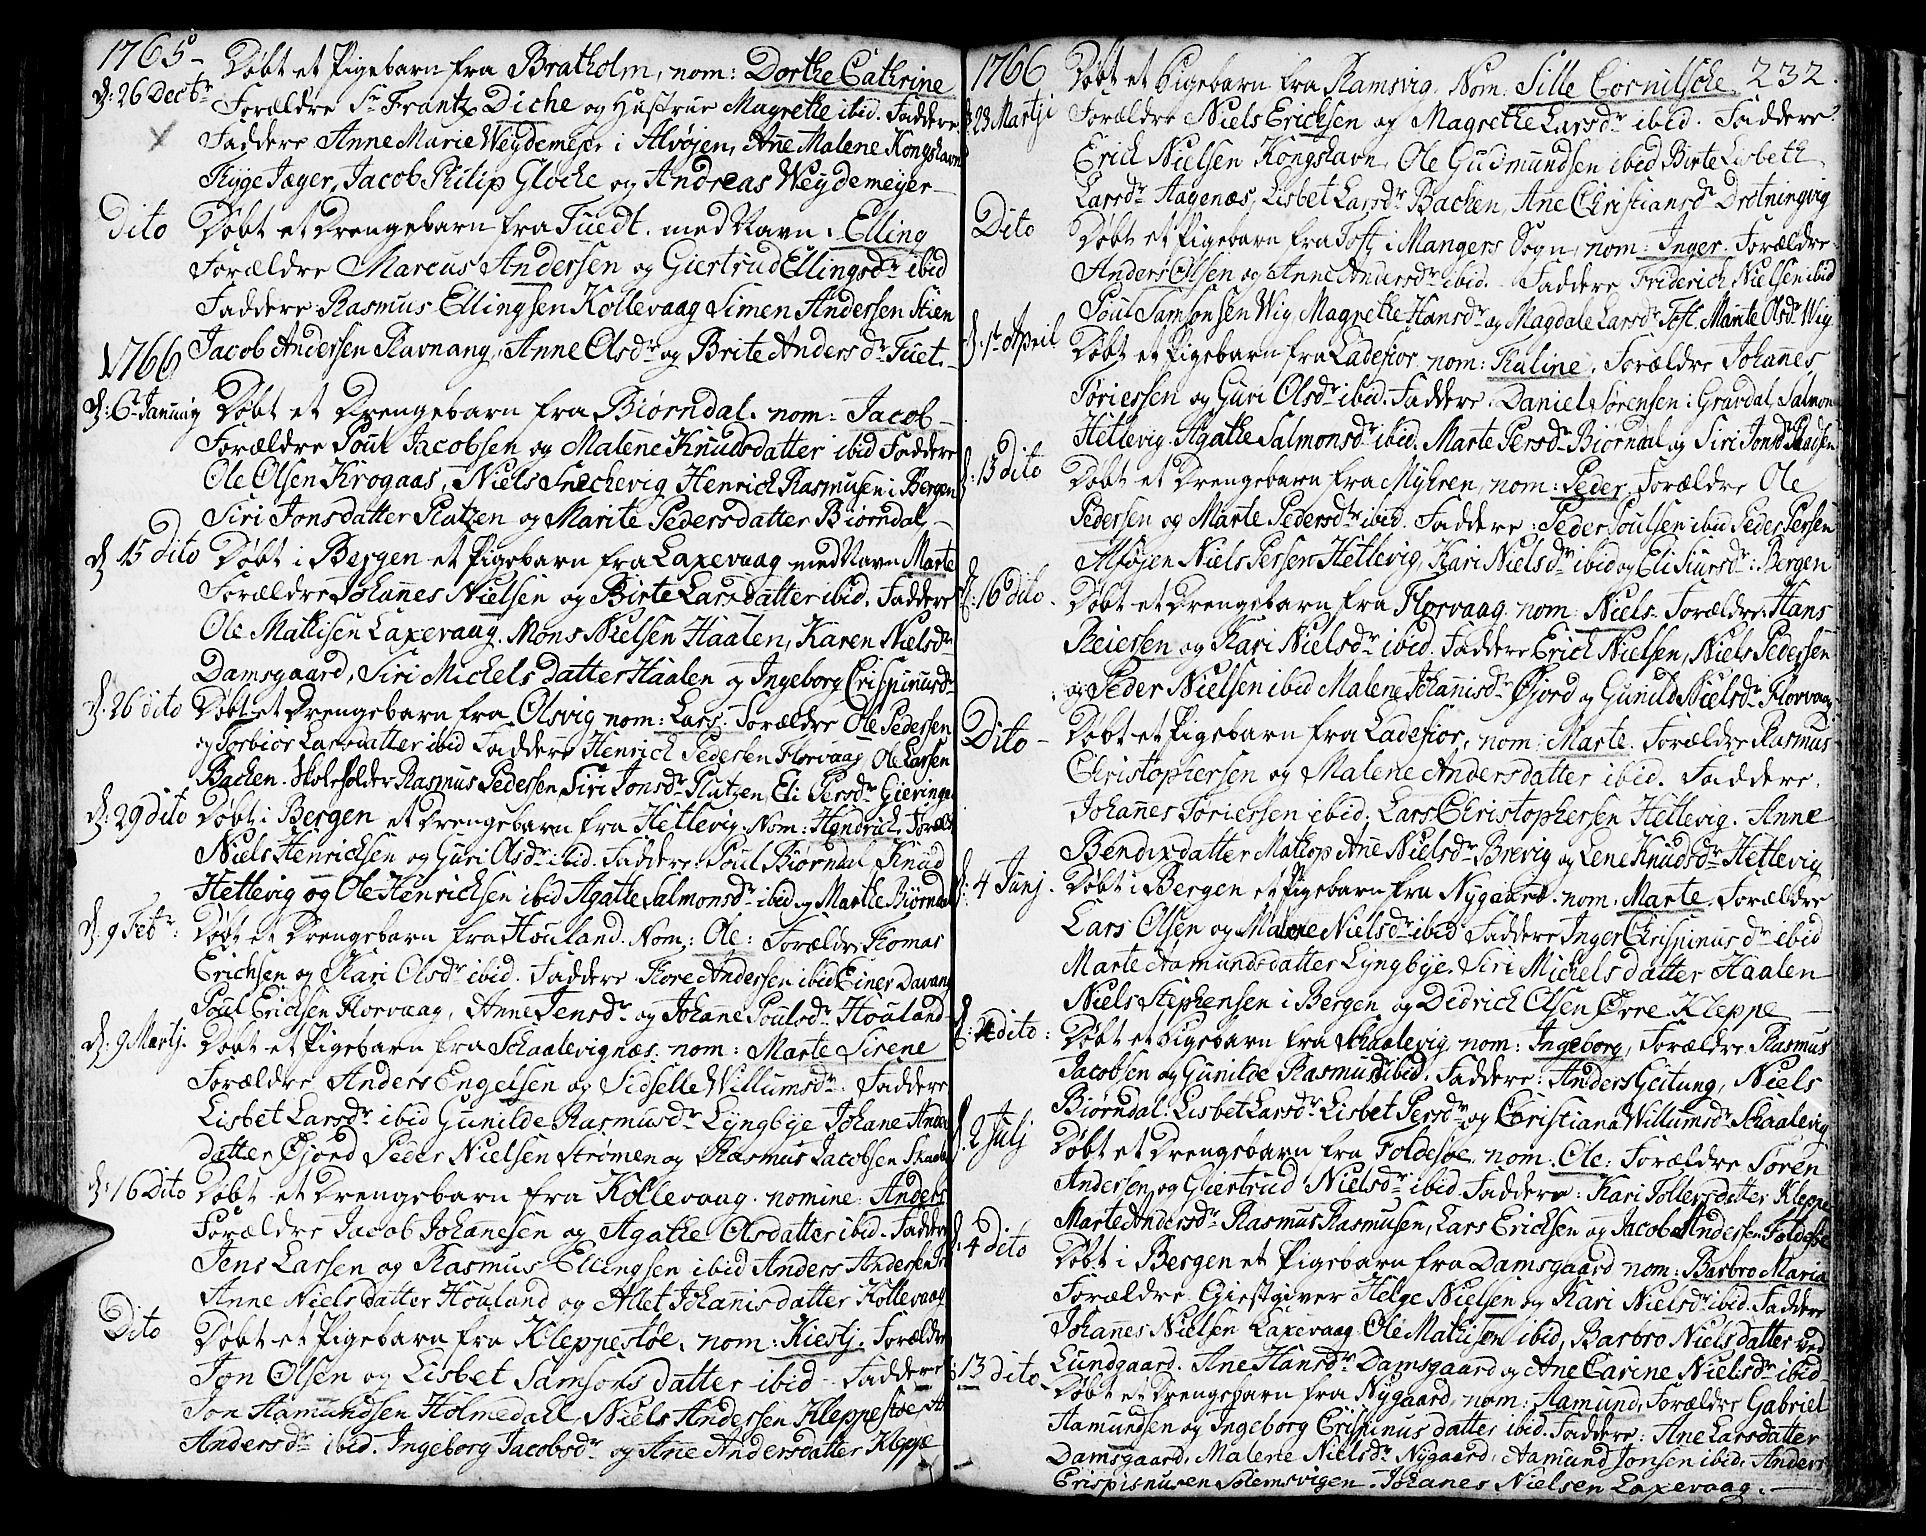 1765 -
d: 26 Decbr Døbt et Pigebarn fra Bratholm, nom: Dorthe Cathrine
Forældre Sr Frantz Diche og Hustrue Magrethe ibid. Faddere
Faddere Anne Marie Weydemejer i Alvøjen, Ane Malene Kongshavn
Ryge Jæger, Jacob Philip Gloche og Andreas Weydemeyer -
Dito Døbt et Drengebarn fra Tuedt. med Navn: Elling
Forældre Marcus Andersen og Giertrud Ellingsdr ibid
Faddere: Rasmus Ellingsen Kollevaag Simen Andersen Stien
Jacob Andersen Ravnang, Anne Olsdr og Brite Andersdr Tuet. -
1766
d: 6 Januarij Døbt et Drengebarn fra Biørndal. nom: Jacob -
Forældre Poul Jacobsen og Malene Knudsdatter ibid Faddere
Ole Olsen Krogaas, Niels Snechevig Henrich Rasmusen i Bergen
Siri Jonsdatter Plutzen og Marite Pedersdatter Biørndal, -
d 15 dito Døbt i Bergen et Pigebarn fra Laxevaag med Navn Marte
Forældre Johanes Nielsen og Birte Larsdatter ibid. Faddere
Ole Mathisen Laxevaag. Mons Nielsen Haalen, Karen Nielsdr
Damsgaard, Siri Michelsdatter Haalen og Ingeborg Crispinusdr
d. 26 dito Døbt et Drengebarn fra Olsvig nom: Lars. Forældre Ole Pedersen
og Torbiør Larsdatter ibid Faddere Henrich Pedersen Florvaag, Ole Larsen
Bachen. Skoleholder Rasmus Pedersen, Siri Jonsdr Plutzen, Eli Persdr Gieringe
d: 29 dito Døbt i Bergen et Drengebarn fra Hetlevig. Nom: Hendrich, Forældr
Niels Henrichsen og Guri Olsdr ibid. Faddere: Poul Biørndal Knud
Hetlevig og Ole Henrichsen ibid Agathe Salmonsdr ibid og Marthe Biørndal
d. 9 Febr: Døbt et Drengebarn fra Houland. Nom: Ole: Forældre Thomas
Erichsen og Kari Olsdr ibid. Faddere. Thore Andersen ibid Einer Davang
Poul Erichsen Florvaag, Anne Jensdr og Johane Poulsdr Houland -
d: 9 Martj. Døbt et Pigebarn fra Schaalevignæs. nom: Marte Sirene
Forældre Anders Engelsen og Sidselle Willumsdr. Faddere
Lisbet Larsdr ibid Gunilde Rasmusdr Lyngbye Johane Anders
datter Øjord Peder Nielsen Strømen og Rasmus Jacobsen Skaale
d: 16 Dito Døbt et Drengebarn fra Kollevaag. nomine: Anders
Forældre Jacob Johanesen og Agathe Olsdatter ibid. Faddere
Jens Larsen og Rasmus Ellingsen ibid Anders Andersen
Anne Nielsdatter Houland og Alet Johanisdatter Kollevaag
Dito Døbt et Pigebarn fra Kleppestøe. nom: Kiestj. Forældre
Jon Olsen og Lisbet Samsonsdatter ibid - Faddere
Jon Aamundsen Holmedall, Niels Andersen Kleppestøe
Andersdr ibid. Ingeborg Jacobsdr og Ane Andersdatter Kleppe
1766 232.
d 23 Martj Døbt et Pigebarn fra Ramsvig. Nom: Sille Cornilsche.
Forældre Niels Ericksen og Magrethe Larsdr ibid. Faddere
Erich Nielsen Kongshavn, Ole Gudmundsen ibid Birte Lisbeth
Larsdr Hagenæs, Lisbet Larsdr Bachen, Ane Christiansdr Drotningvig
Dito Døbt et Pigebarn fra Toft i Mangers Sogn, nom: Inger. Forældre
Anders Olsen og Anne Andersdr ibid. - Faddere Friderich Nielsen ibid
Poul Samsonsen Wig, Magrethe Hansdr og Magdale Larsdr Toft Marite Olsdr Wig
d. 1st April Døbt et Pigebarn fra Ladefior, nom: Kuline. Forældre Johanes
Toriessen og Guri Olsdr ibid. Faddere. Daniel Sørensen i Gravdal, Salmon
Hetlevig. Agathe Salmonsdr ibid. Marte Persdr Biørndal og Siri Jonsdr
d: 13 dito Døbt et Drengebarn fra Myhren, nom: Peder, Forældre Ole
Pedersen og Marte Pedersdr ibid. Faddere: Peder Poulsen ibid Peder Persen
Alføjen Niels Persen Hetlevig, Kari Nielsdr ibid og Eli Siursdr i Bergen
d: 16 dito. Døbt et Drengebarn fra Florvaag. nom: Niels. Forældre Hans
Reiersen og Kari Nielsdr ibid. Faddere Erich Nielsen, Niels Pedersen
og Peder Nielsen ibid Malene Johanisdr Øjord og Gunild Nielsdr Florvaag.
Dito - Døbt et Pigebarn fra Ladefior, nom: Marte. Forældre Rasmus
Christophersen og Malene Andersdatter ibid. Faddere.
Johanes Toriessen ibid. Lars Christophersen Hetlevig. Anne
Bendixdatter Mathop Ane Nielsdr Brevig og Lene Knudsdr Hetlevig
d: 4 Junj. Døbt i Bergen et Pigebarn fra Nygaard. nom: Marte. Forældre
Lars Olsen og Malene Nielsdr ibid Faddere Inger Chrispinusdr ibid
Marte Aamundsdatter Lyngbye. Siri Michelsdatter Haalen
Niels Stephensen i Bergen og Didrich Olsen Øvre Kleppe -
dito: Døbt et Pigebarn fra Schaalevig nom: Ingeborg, Forældre Rasmus
Jacobsen og Gunilde Rasmusd ibid. Faddere: Anders Geitung, Niels
Biørndal. Lisbet Larsdr Lisbet Persdr og Christiana Willumsdr Schaalevig
d. 2 Julj Døbt et Drengebarn fra Foldesøe, nom: Ole: Forældre Søren
Andersen og Giertrud Nielsdr ibid. Faddere: Kari Tollersdatter Kleppe
Marte Andersdr Rasmus Rasmusen, Lars Erichsen og Jacob Andersen Foldesøe
d: 4 dito Døbt i Bergen et Pigebarn fra Damsgaard nom: Barbro Maria
Forældre Giestgiver Helge Nielsen og Kari Nielsdr ibid. Faddere
Johanes Nielsen Laxevaag. Ole Mathisen ibid, Barbro Nielsdatter ved
Lundgaard. Ane Hansdr Damsgaard og Ane Carine Nielsdr ibid -
13 dito. Døbt et Drengebarn fra Nygaard, nom: Aamund, Forældre Gabriel
Aamundsen og Ingeborg Crispinusdatter ibid. Faddere: Ane Larsdatter
Damsgaard, Malene Nielsdr Nygaard, Aamund Jonsen ibid. Anders
Crispisnusen Solemsvigen. Johanes Nielsen Laxevaag. -